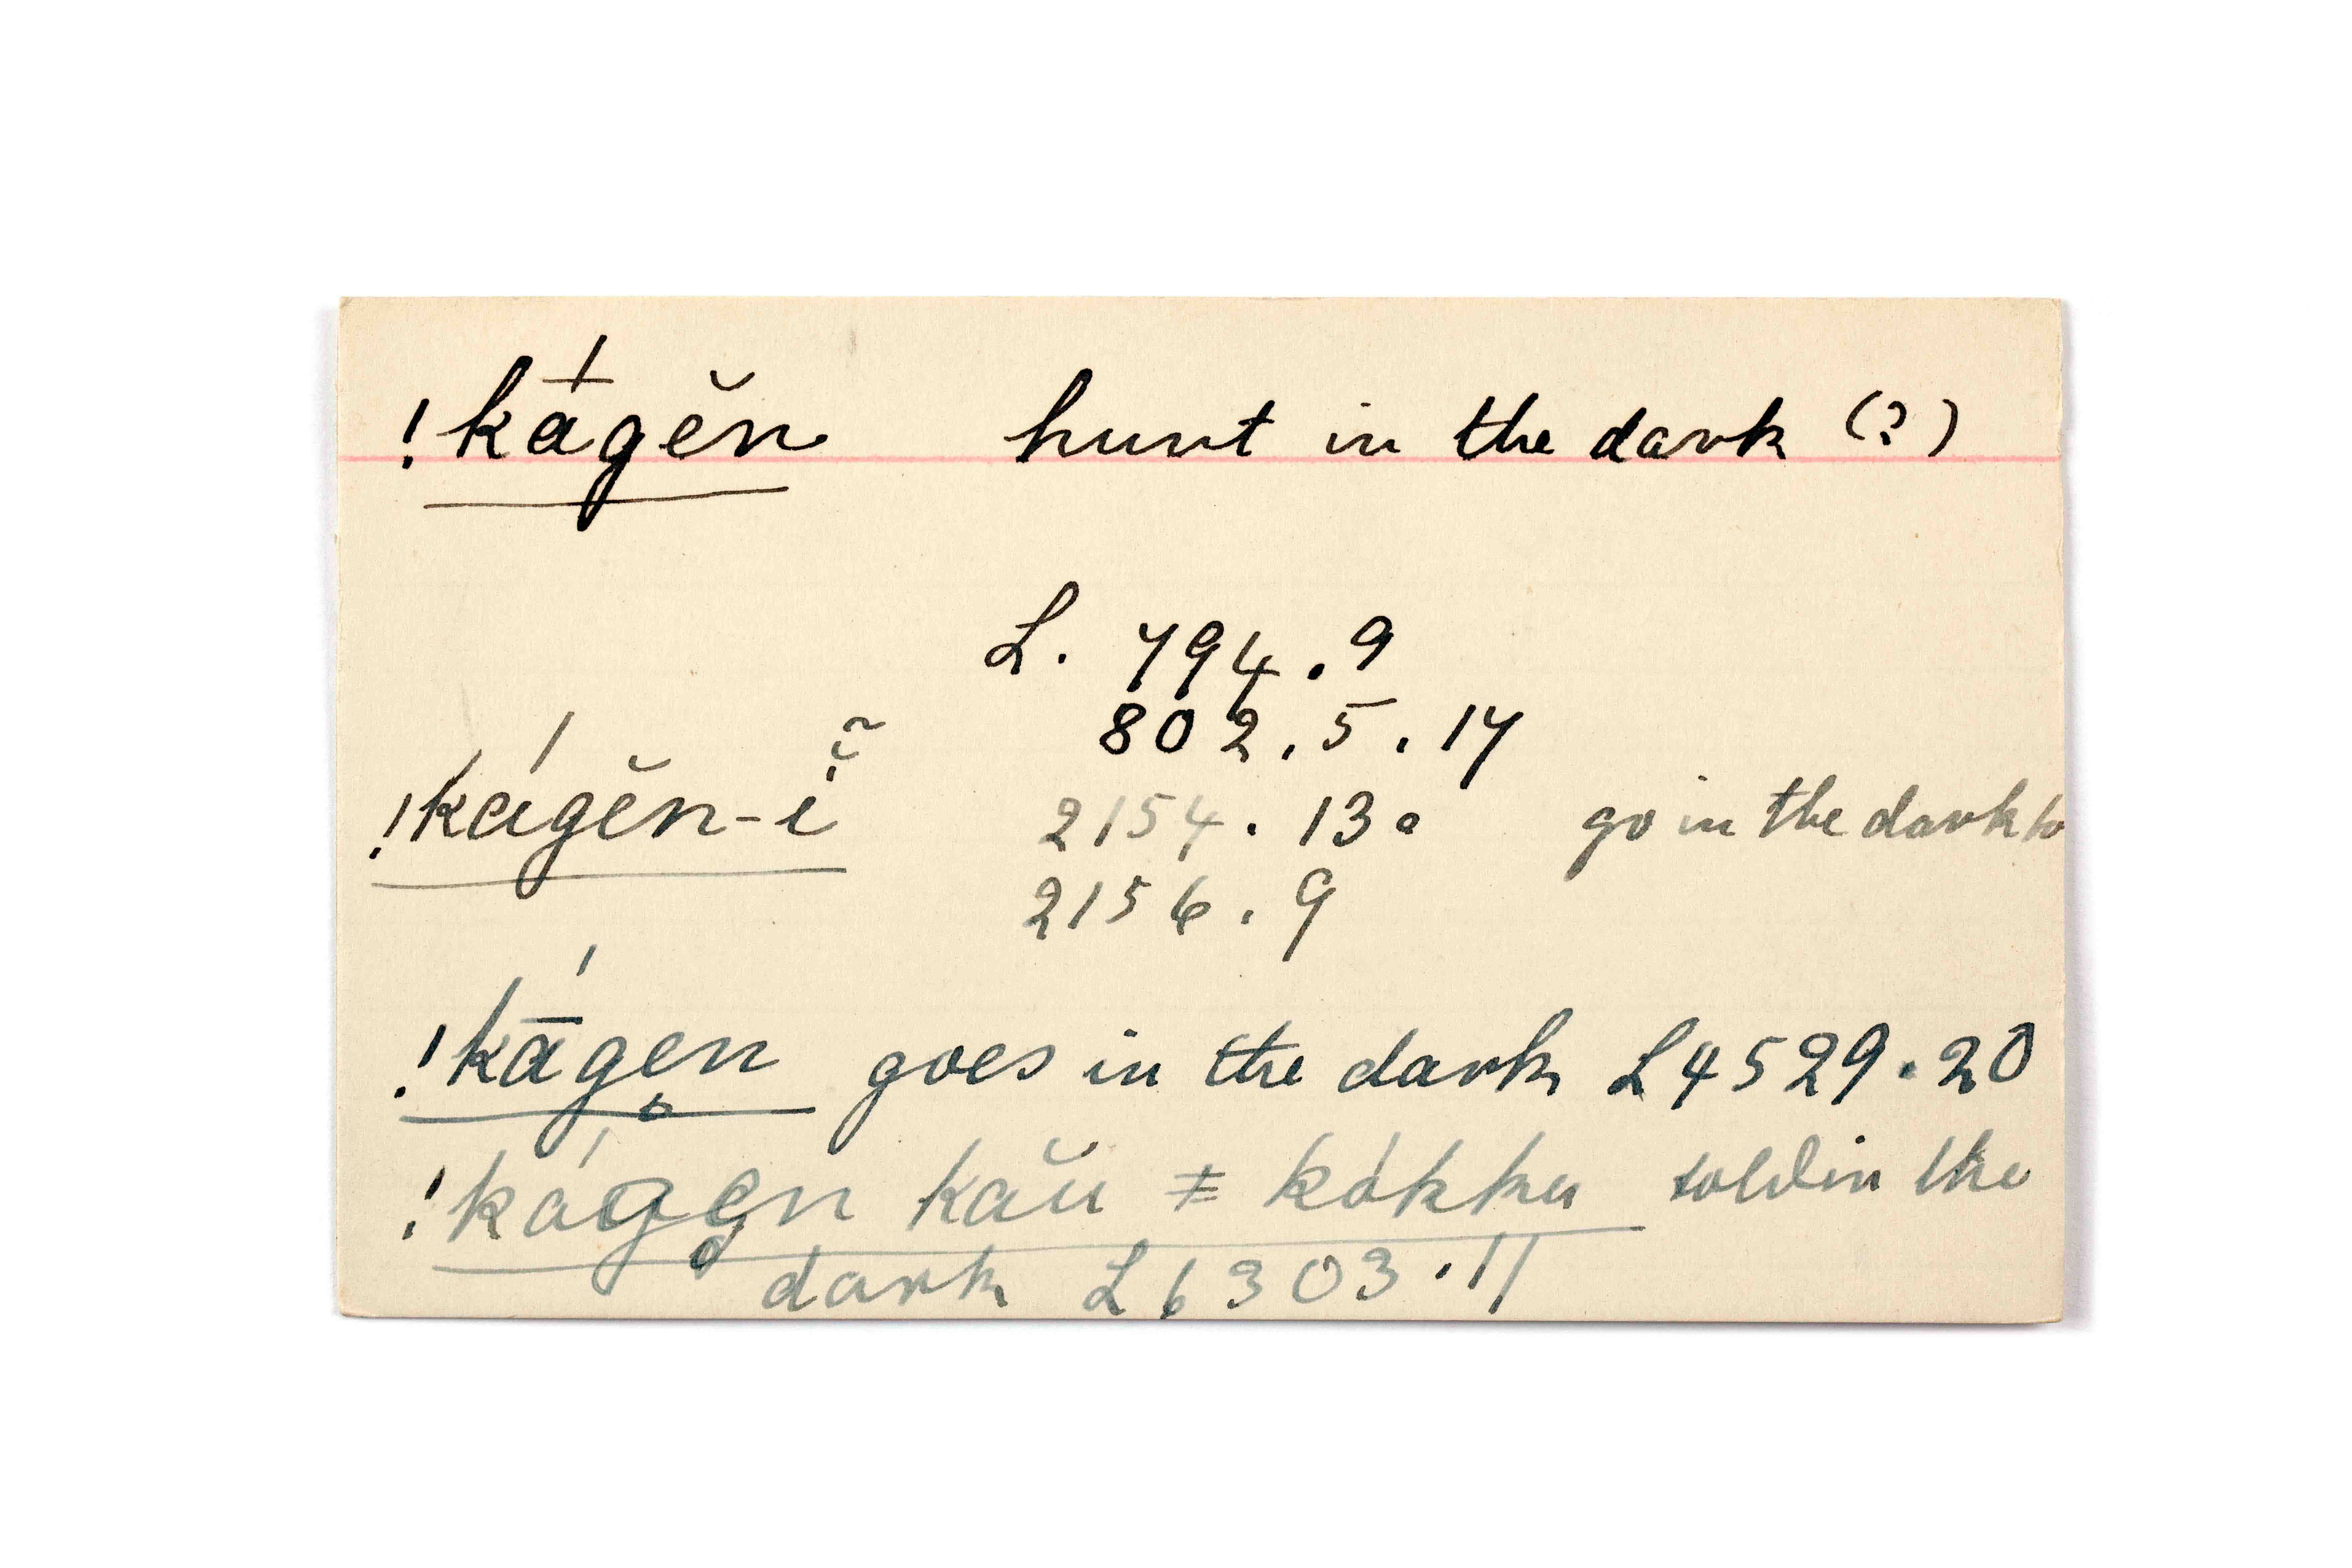 !kā́gĕn hunt in the dark (?)
L. 794.9
802.5.17
!kágĕn-ĭ̃ 2154.13. go in the dark to
2156.9
!kā́gen̥ goes in the dark L4529.20
!kágen̥ kaŭ ǂ kákka told in the
dark L6303.11